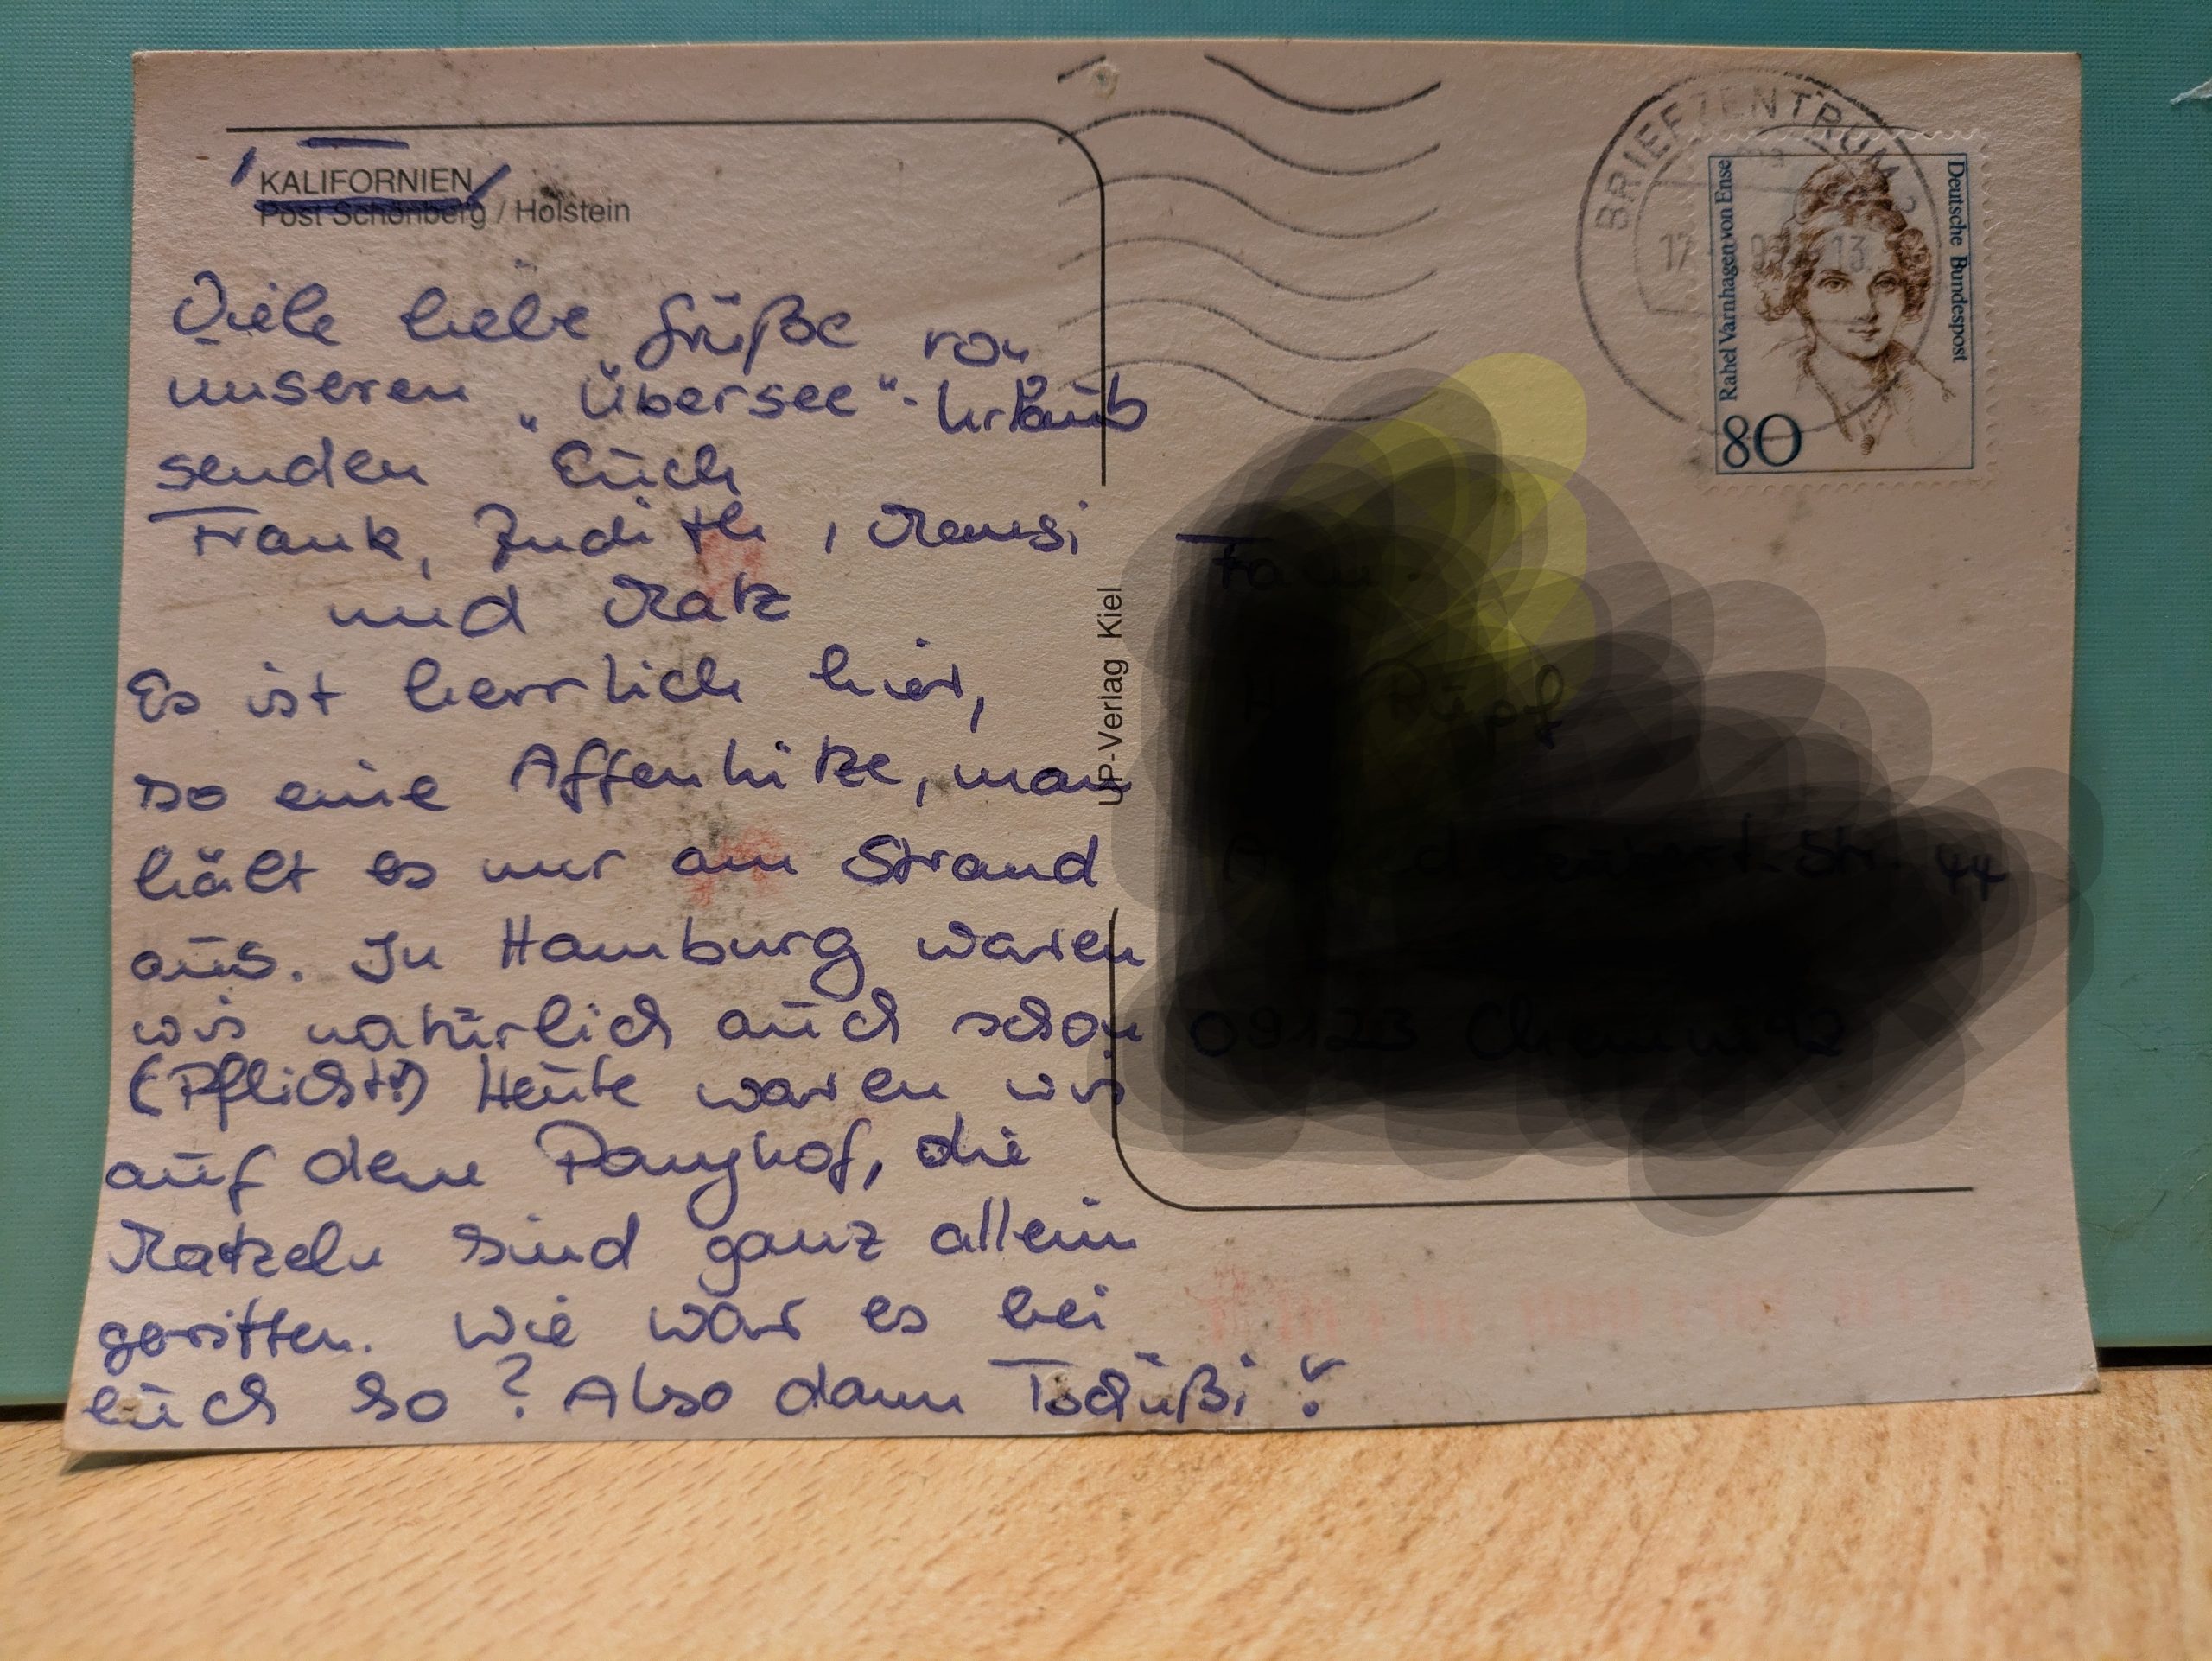 KALIFORNIEN
Post Schönberg / Holstein
Viele liebe Grüße von
unseren „Übersee"-Urlaub
senden Euch
Frank, Judith, Ramsi
und Ratz
Es ist herrlich hier,
so eine Affenhitze, man
hält es nur am Strand
aus. In Hamburg waren
wir natürlich auch schon
(Pflicht!) Heute waren wir
auf dem Ponyhof, die
Ratzeln sind ganz allein
geritten. Wie war es bei
euch so? Also dann Tschüßi!
UP-Verlag Kiel
BRIEFZENTRUM
17
13
Rahel Varnhagen von Ense
Deutsche Bundespost
80